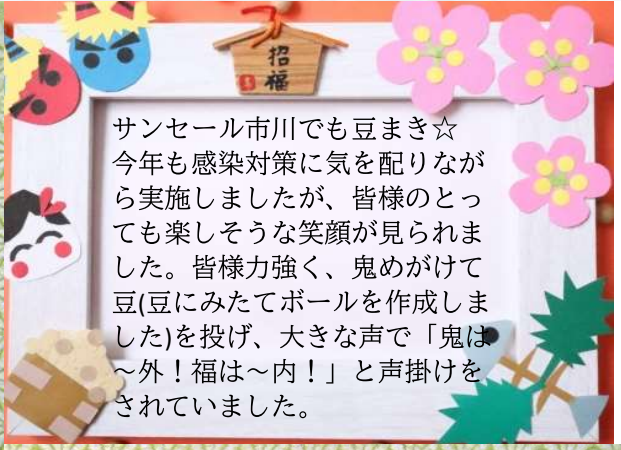 招福
サンセール市川でも豆まき☆
今年も感染対策に気を配りなが
ら実施しましたが、皆様のとっ
ても楽しそうな笑顔が見られま
した。皆様力強く、鬼めがけて
豆(豆にみたてボールを作成しま
した)を投げ、大きな声で「鬼は
～外！福は～内！」と声掛けを
されていました。